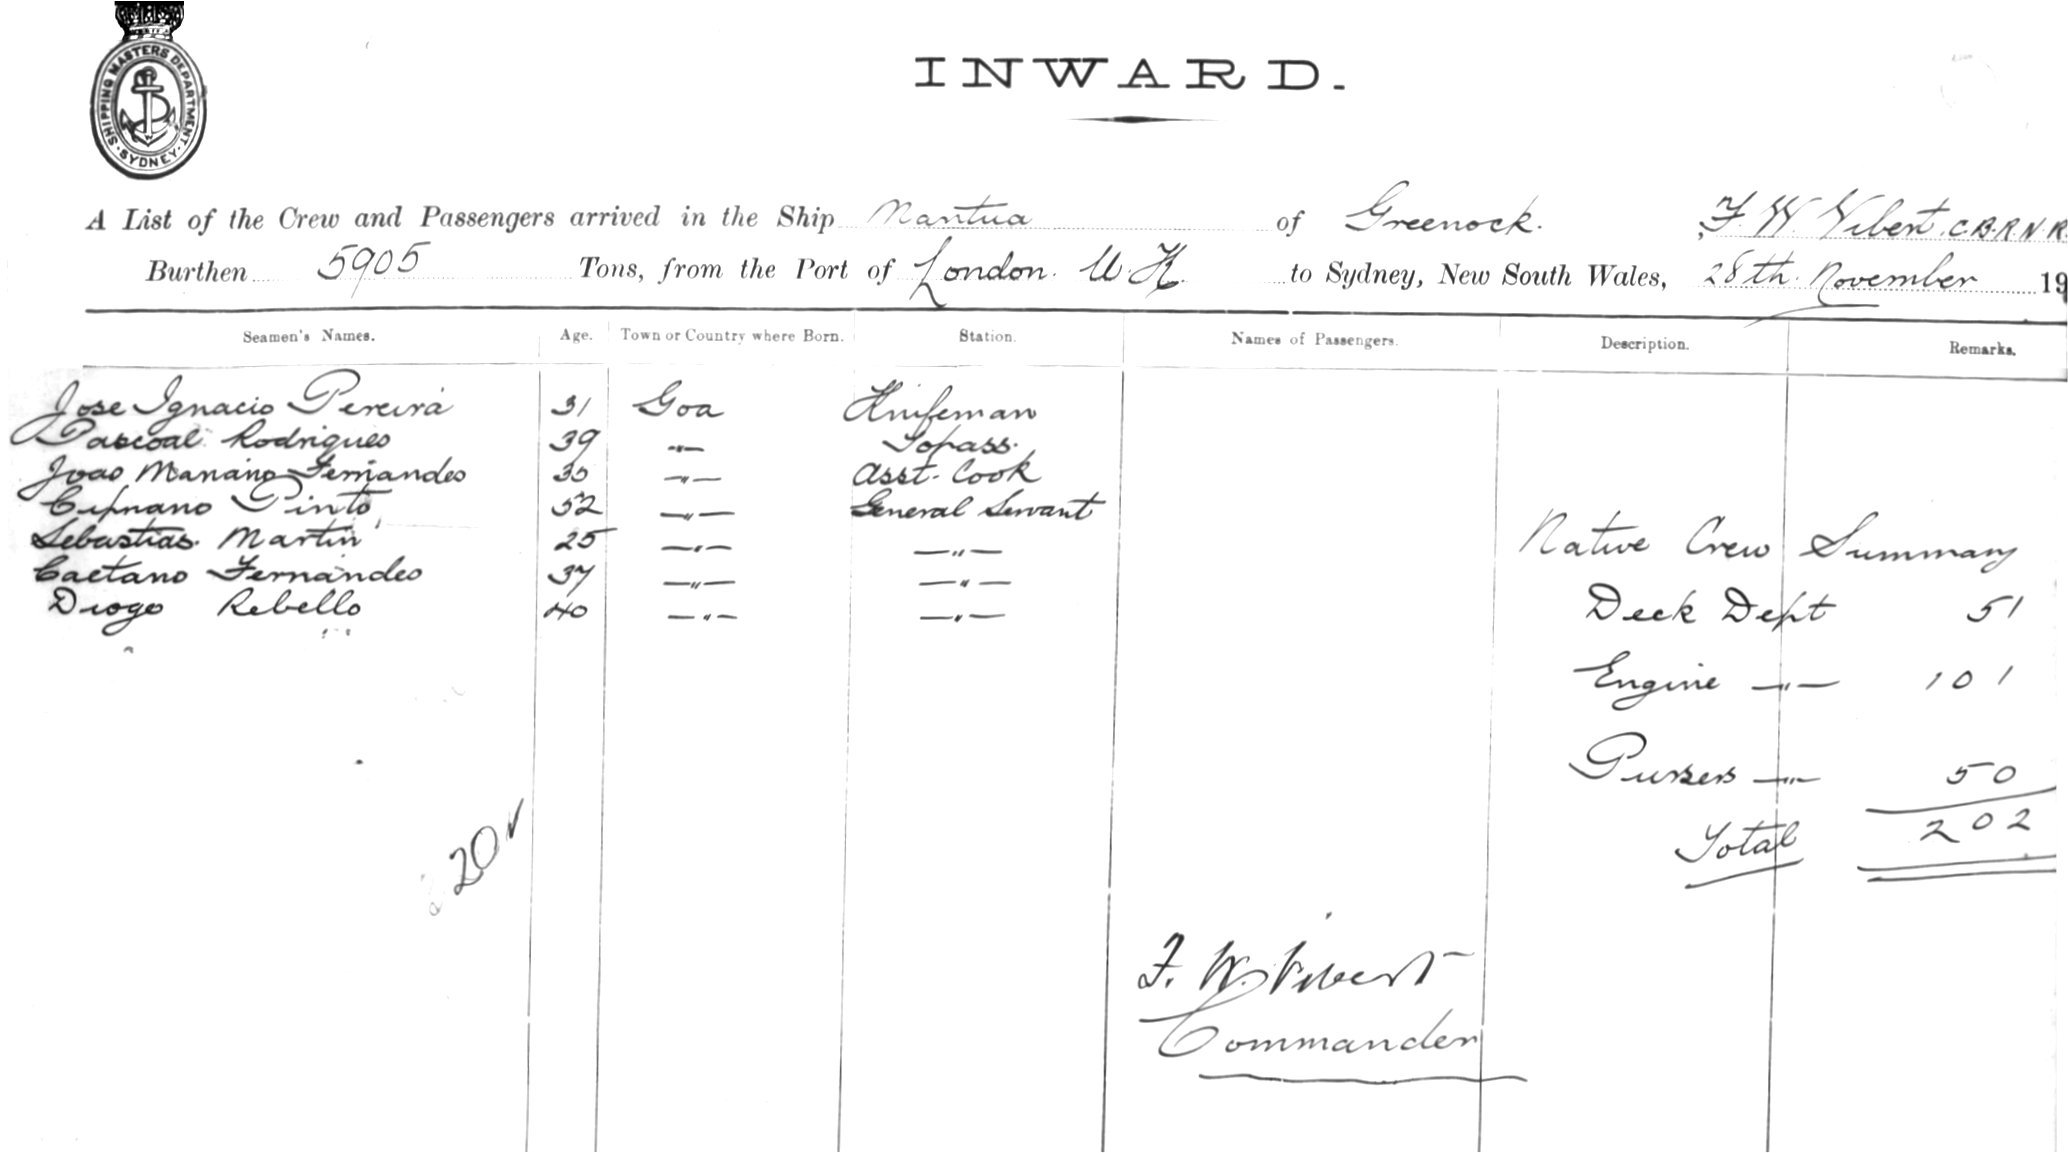 SHIPPING MASTERS DEPARTMENT · SYDNEY ·
INWARD.
A List of the Crew and Passengers arrived in the Ship Mantua of Greenock. F. W. Vibert, C.B. R.N.R.
Burthen 5905 Tons, from the Port of London. U.K. to Sydney, New South Wales, 28th November 19
Seamen's Names. Age. Town or Country where Born. Station. Names of Passengers. Description. Remarks.
Jose Ignacio Pereira 31 Goa Knifeman
Pascoal Rodrigues 39 -"- Topass.
Joao Mariano Fernandes 30 -"- Asst. Cook
Cipriano Pinto 52 -"- General Servant
Sebastiao Martin 25 -"- -"-
Native Crew Summary
Caetano Fernandes 37 -"- -"-
Diogo Rebello 40 -"- -"-
Deck Dept 51
Engine -"- 101
Pursers -"- 50
Total 202
F. W. Vibert
Commander